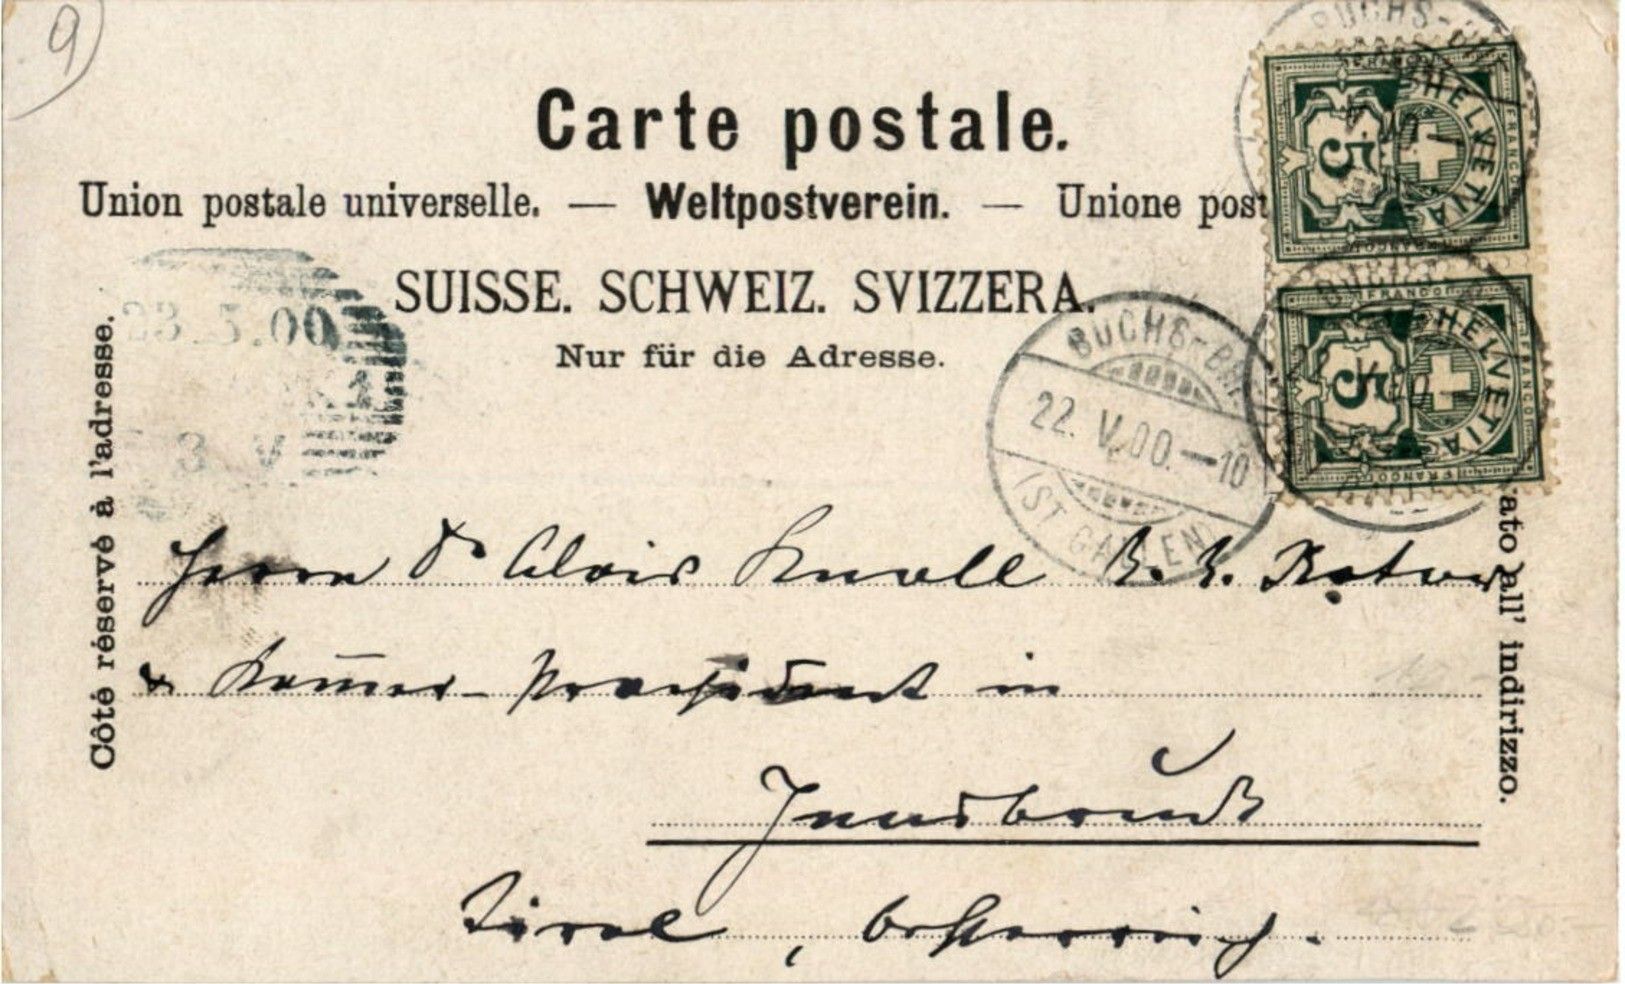 9
Carte postale.
Union postale universelle. — Weltpostverein. — Unione post
SUISSE. SCHWEIZ. SVIZZERA.
Nur für die Adresse.
Côté réservé à l'adresse.
ato all' indirizzo.
FRANCO HELVETIA 5
FRANCO HELVETIA 5
BUCHS-
BUCHS-B
22. V. 00.—10
(ST. GALLEN)
23.5.00
3 V
Herrn Dr Alois Knoll K. K. Notar
& Kam̅er-Praesident in
Innsbruck
Tirol, Oesterreich.